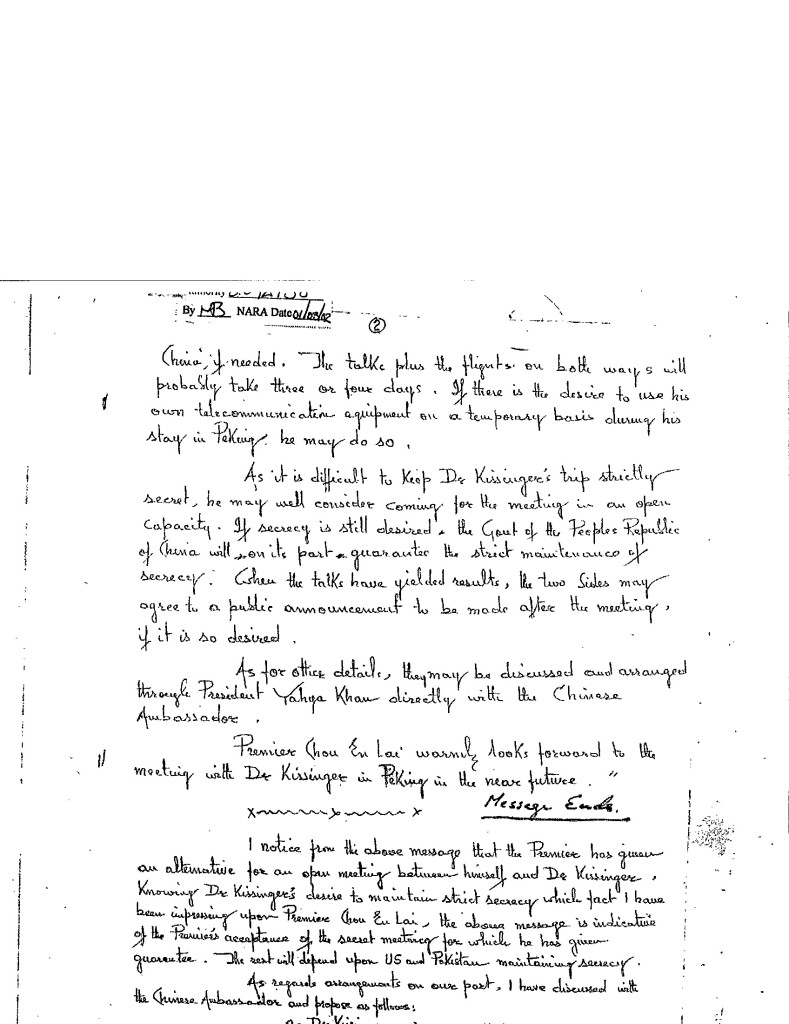 By MB NARA Date 01/08/02
②
China, if needed. The talks plus the flights on both ways will
probably take three or four days. If there is the desire to use his
own telecommunication equipment on a temporary basis during his
stay in Peking he may do so.
As it is difficult to keep Dr Kissinger's trip strictly
secret, he may well consider coming for the meeting in an open
capacity. If secrecy is still desired, the Govt of the Peoples Republic
of China will, on its part, guarantee the strict maintenance of
secrecy. When the talks have yielded results, the two sides may
agree to a public announcement to be made after the meeting,
if it is so desired.
As for other details, they may be discussed and arranged
through President Yahya Khan directly with the Chinese
Ambassador.
Premier Chou En Lai warmly looks forward to the
meeting with Dr Kissinger in Peking in the near future."
Message Ends.
x~~~~~x~~~~~x
I notice from the above message that the Premier has given
an alternative for an open meeting between himself and Dr Kissinger.
Knowing Dr Kissinger's desire to maintain strict secrecy which fact I have
been impressing upon Premier Chou En Lai, the above message is indicative
of the Premier's acceptance of the secret meeting for which he has given
guarantee. The rest will depend upon US and Pakistan maintaining secrecy.
As regards arrangements on our part, I have discussed with
the Chinese Ambassador and propose as follows: